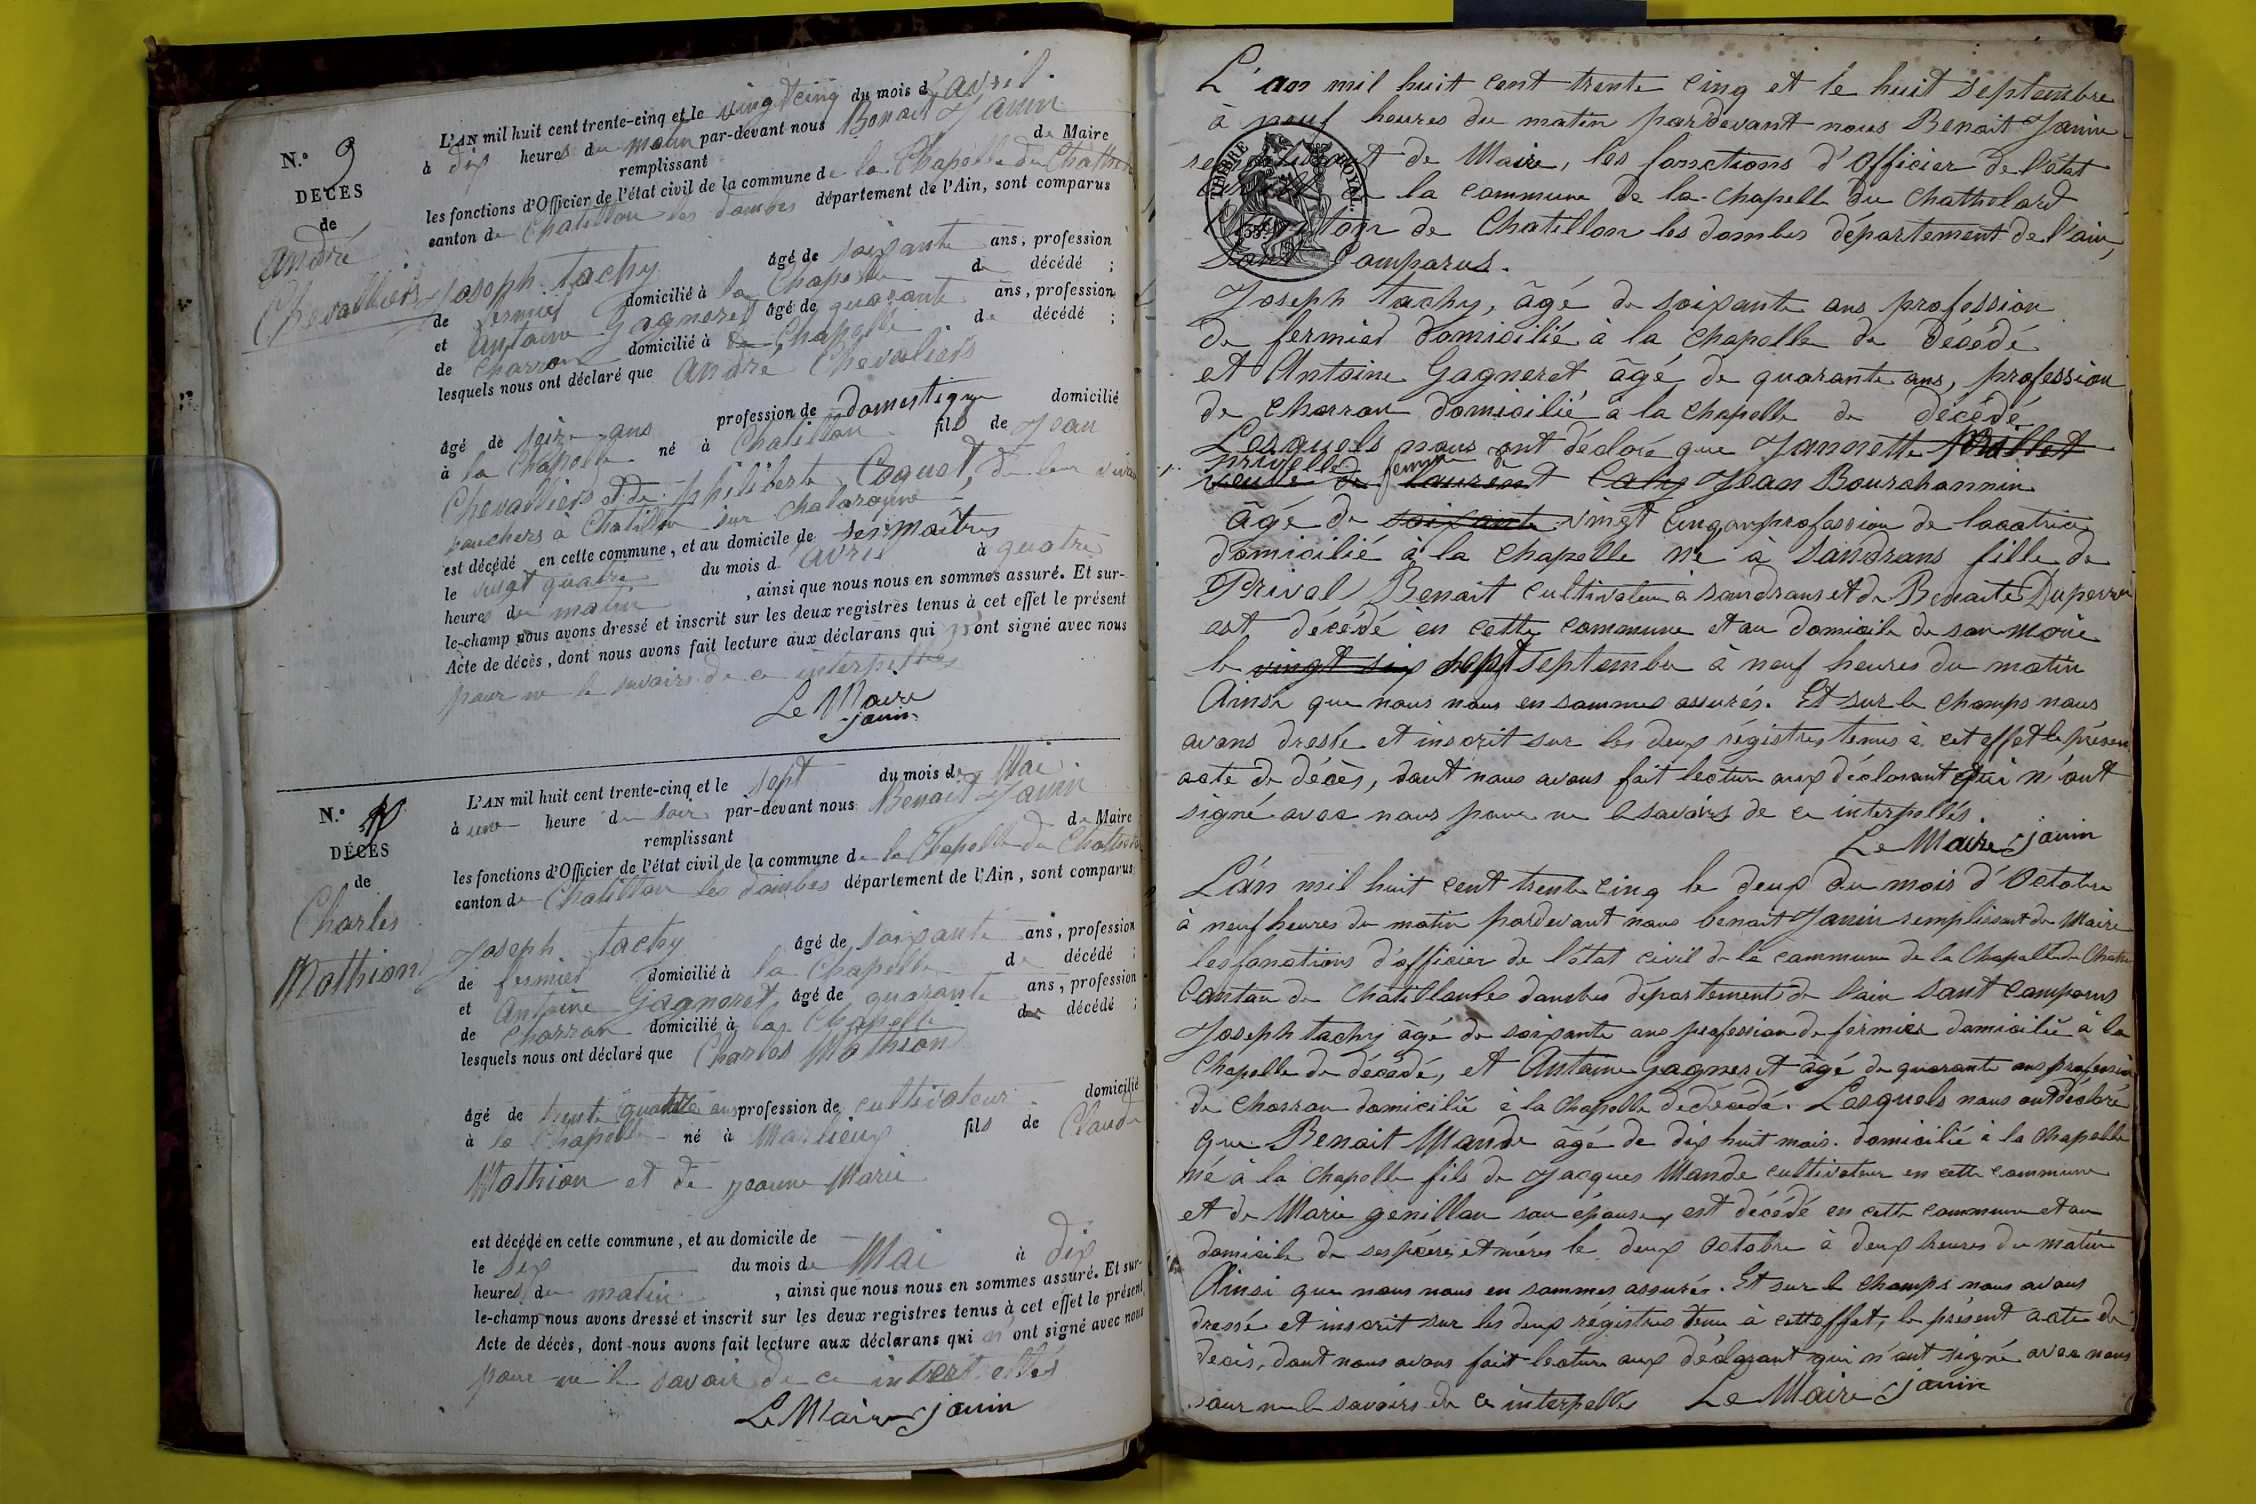 N.° 9
DÉCÈS
de
André
Chevalliers
L'AN mil huit cent trente-cinq et le vingt cinq du mois d'avril
à dix heures du matin par-devant nous Benoit Janin
remplissant de Maire
les fonctions d'Officier de l'état civil de la commune de la Chapelle du Chathen
canton de Chatillon les dombes département de l'Ain, sont comparus
Joseph tachy âgé de soixante ans, profession
de fermier domicilié à la Chapelle de décédé ;
et Antoine Gagneret âgé de quarante ans, profession
de Charron domicilié à la Chapelle de décédé ;
lesquels nous ont déclaré que André Chevaliers
âgé de seize ans profession de domestique domicilié
à la Chapelle né à Chatillon fils de Jean
Chevalliers et de philiberte Coquet, de leur vivan
bouchers à Chatillon sur chalaronne
est décédé en cette commune, et au domicile de ses maîtres
le vingt quatre du mois d'avril à quatre
heures du matin, ainsi que nous nous en sommes assuré. Et sur-
le-champ nous avons dressé et inscrit sur les deux registres tenus à cet effet le présent
Acte de décès, dont nous avons fait lecture aux déclarans qui n'ont signé avec nous
pour ne le savoirs de ce interpellés
Le Maire
janin
N.° 10
DÉCÈS
de
Charles
Mathion
L'AN mil huit cent trente-cinq et le sept du mois de Mai
à une heure du soir par-devant nous Benoit Janin
remplissant de Maire
les fonctions d'Officier de l'état civil de la commune de la Chapelle du Chathol
canton de Chatillon les dombes département de l'Ain, sont comparus
Joseph tachy âgé de soixante ans, profession
de fermier domicilié à la Chapelle de décédé ;
et Antoine Gagneret âgé de quarante ans, profession
de Charron domicilié à la Chapelle de décédé ;
lesquels nous ont déclaré que Charles Mathion
âgé de trente quatre ans profession de cultivateur domicilié
à la Chapelle né à Marlieux fils de Claude
Mathion et de jeanne Marie
est décédé en cette commune, et au domicile de
le six du mois de Mai à dix
heures du matin, ainsi que nous nous en sommes assuré. Et sur-
le-champ nous avons dressé et inscrit sur les deux registres tenus à cet effet le présent
Acte de décès, dont nous avons fait lecture aux déclarans qui n'ont signé avec nous
pour ne le savoir de ce interpellés
Le Maire janin
L'an mil huit cent trente cinq et le huit septembre
à neuf heures du matin pardevant nous Benoit Janin
remplissant de Maire, les fonctions d'Officier de l'état
TIMBRE ROYAL
la commune de la Chapelle du Chathelard
de Chatillon les dombes département de l'ain,
sont Comparus.
Joseph tachy, âgé de soixante ans profession
de fermier domicilié à la Chapelle de décédé
et Antoine Gagneret âgé de quarante ans, profession
de Charron domicilié à la Chapelle de décédé
Lesquels nous ont déclaré que Jannette
femme de
veuve de Laurent Jean Bourchannin
âgé de soixante vingt cinq ans profession de locatrice
domicilié à la Chapelle né à Sandrans fille de
Prival Benoit cultivateur à sandrans et de Benoite Duperron
est décédé en cette commune et au domicile de son Mari
le vingt six sept septembre à neuf heures du matin
Ainsi que nous nous en sommes assurés. Et sur le champs nous
avons dressé et inscrit sur les deux régistres tenus à cet effet le présen
acte de décès, dont nous avons fait lecture aux déclarant qui n'ont
signé avec nous pour ne le savoirs de ce interpellés
Le Maire janin
L'an mil huit cent trente cinq le deux du mois d'Octobre
à neuf heures du matin pardevant nous benoit Janin remplissant de Maire
les fonctions d'officier de l'état civil de la commune de la Chapelle du Chath
Canton de Chatillon les dombes département de l'ain sont Comparus
Joseph tachy âgé de soixante ans profession de fermier domicilié à la
Chapelle de décédé, et Antoine Gagneret âgé de quarante ans profession
de Charron domicilié à la Chapelle de décédé. Lesquels nous ont déclaré
que Benoit Mande âgé de dix huit mois domicilié à la Chapelle
né à la Chapelle fils de Jacques Mande cultivateur en cette commune
et de Marie genillon son épouse, est décédé en cette commune et au
domicile de ses pères et mères le deux Octobre à deux heures du matin
Ainsi que nous nous en sommes assurés. Et sur le champs nous avons
dressé et inscrit sur les deux régistres tenu à cette effet, le présent acte de
décis, dont nous avons fait lecture aux déclarant qui n'ont signé avec nous
pour ne le savoirs de ce interpellés Le Maire janin